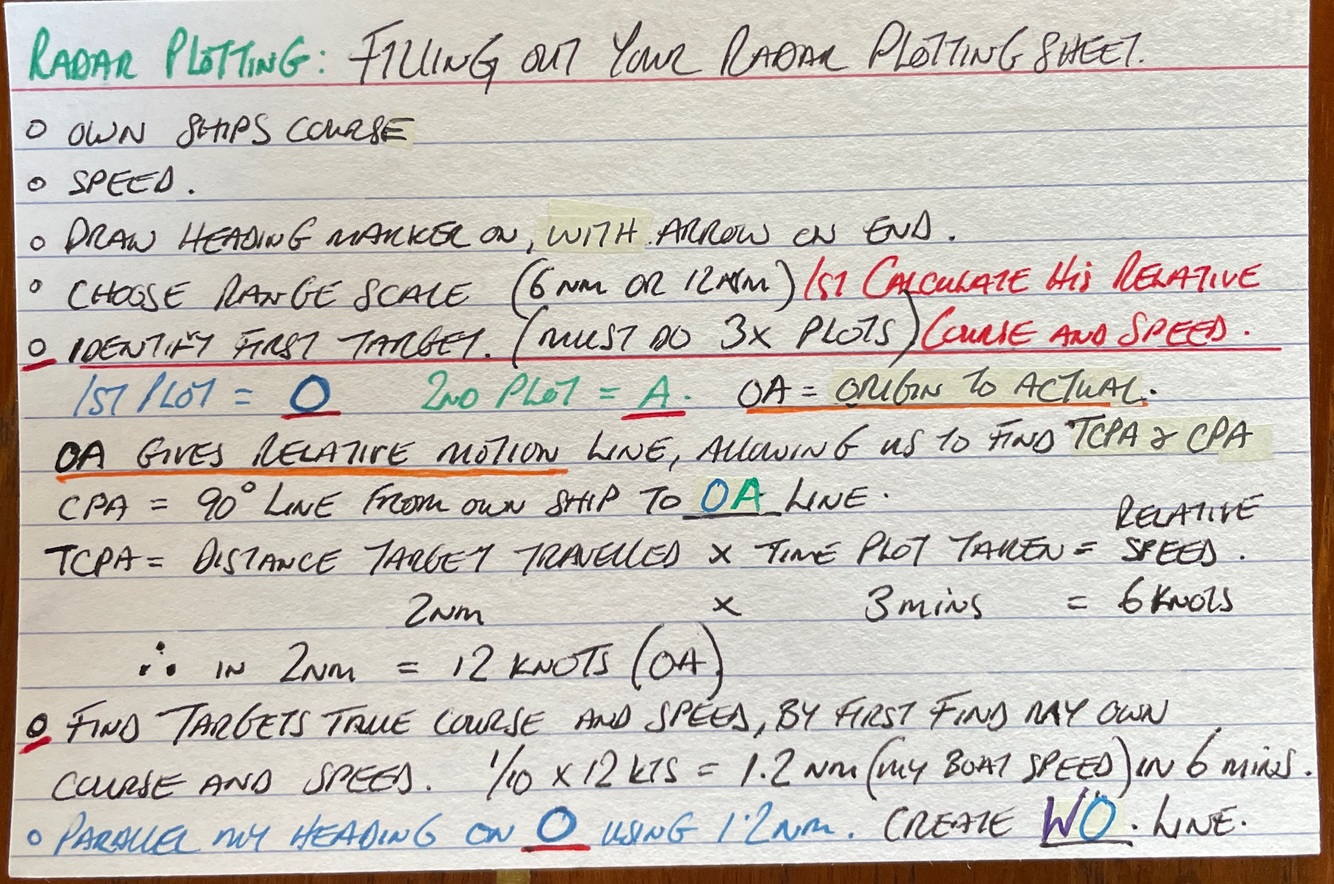 RADAR PLOTTING: FILLING OUT YOUR RADAR PLOTTING SHEET.
o OWN SHIPS COURSE
o SPEED.
o DRAW HEADING MARKER ON, WITH ARROW ON END.
o CHOOSE RANGE SCALE (6NM OR 12NM) 1ST CALCULATE HIS RELATIVE
o IDENTIFY FIRST TARGET. (MUST DO 3X PLOTS) COURSE AND SPEED.
1ST PLOT = O 2ND PLOT = A. OA = ORIGIN TO ACTUAL.
OA GIVES RELATIVE MOTION LINE, ALLOWING US TO FIND TCPA & CPA
CPA = 90° LINE FROM OWN SHIP TO OA LINE.
TCPA = DISTANCE TARGET TRAVELLED X TIME PLOT TAKEN = RELATIVE SPEED.
2NM X 3 MINS = 6 KNOTS
∴ IN 2NM = 12 KNOTS (OA)
o FIND TARGETS TRUE COURSE AND SPEED, BY FIRST FIND MY OWN
COURSE AND SPEED. 1/10 X 12 KTS = 1.2 NM (MY BOAT SPEED) IN 6 MINS.
o PARALLEL MY HEADING ON O USING 1.2NM. CREATE WO. LINE.